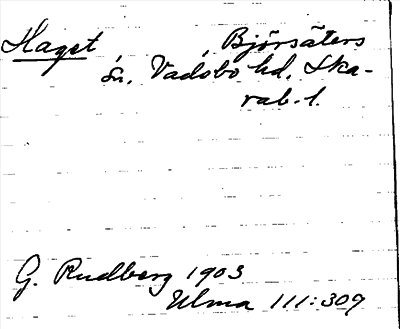 Haget Björsäters
sn, Vadsbo hd, Ska-
rab. l.
G. Rudberg 1903
Ulma 111:309